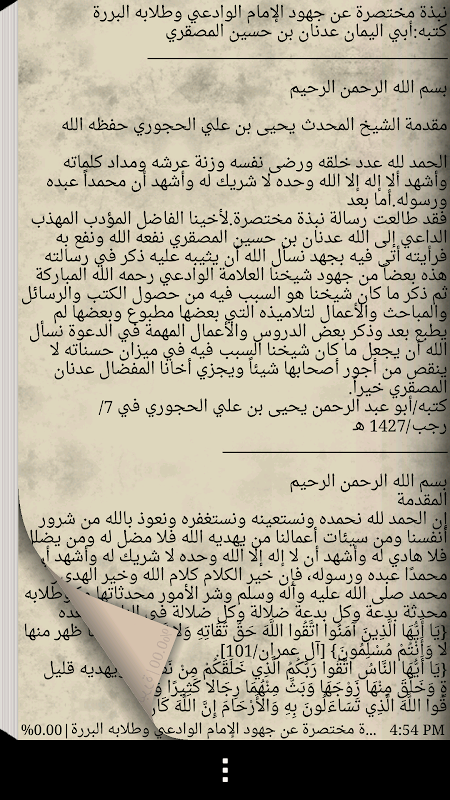 نبذة مختصرة عن جهود الإمام الوادعي وطلابه البررة
كتبه:أبي اليمان عدنان بن حسين المصقري
بسم الله الرحمن الرحيم
مقدمة الشيخ المحدث يحيى بن علي الحجوري حفظه الله
الحمد لله عدد خلقه ورضى نفسه وزنة عرشه ومداد كلماته
وأشهد ألا إله إلا الله وحده لا شريك له وأشهد أن محمداً عبده
ورسوله.أما بعد
فقد طالعت رسالة نبذة مختصرة.لأخينا الفاضل المؤدب المهذب
الداعي إلى الله عدنان بن حسين المصقري نفعه الله ونفع به
فرأيته أتى فيه بجهد نسأل الله أن يثيبه عليه ذكر في رسالته
هذه بعضاً من جهود شيخنا العلامة الوادعي رحمه الله المباركة
ثم ذكر ما كان شيخنا هو السبب فيه من حصول الكتب والرسائل
والمباحث والأعمال لتلاميذه التي بعضها مطبوع وبعضها لم
يطبع بعد وذكر بعض الدروس والأعمال المهمة في الدعوة نسأل
الله أن يجعل ما كان شيخنا السبب فيه في ميزان حسناته لا
ينقص من أجور أصحابها شيئاً ويجزي أخانا المفضال عدنان
المصقري خيراً.
كتبه/أبو عبد الرحمن يحيى بن علي الحجوري في 7/
رجب/1427 هـ
بسم الله الرحمن الرحيم
المقدمة
إن الحمد لله نحمده ونستعينه ونستغفره ونعوذ بالله من شرور
أنفسنا ومن سيئات أعمالنا من يهديه الله فلا مضل له ومن يضلل
فلا هادي له وأشهد أن لا إله إلا الله وحده لا شريك له وأشهد أن
محمدًا عبده ورسوله، فإن خير الكلام كلام الله وخير الهدي
محمد صلى الله عليه وآله وسلم وشر الأمور محدثاتها وطلابه
محدثة بدعة وكل بدعة ضلالة وكل ضلالة في
{يَا أَيُّهَا الَّذِينَ آمَنُوا اتَّقُوا اللَّهَ حَقَّ تُقَاتِهِ وَلا ظهر منها
لا وَأَنْتُمْ مُسْلِمُونَ} [آل عمران/101].
{يَا أَيُّهَا النَّاسُ اتَّقُوا رَبَّكُمُ الَّذِي خَلَقَكُمْ مِنْ يهديه قليل
ةٍ وَخَلَقَ مِنْهَا زَوْجَهَا وَبَثَّ مِنْهُمَا رِجَالًا كَثِيرًا
قُوا اللَّهَ الَّذِي تَسَاءَلُونَ بِهِ وَالْأَرْحَامَ إِنَّ اللَّهَ
4:54 PM ...ة مختصرة عن جهود الإمام الوادعي وطلابه البررة|0.00%